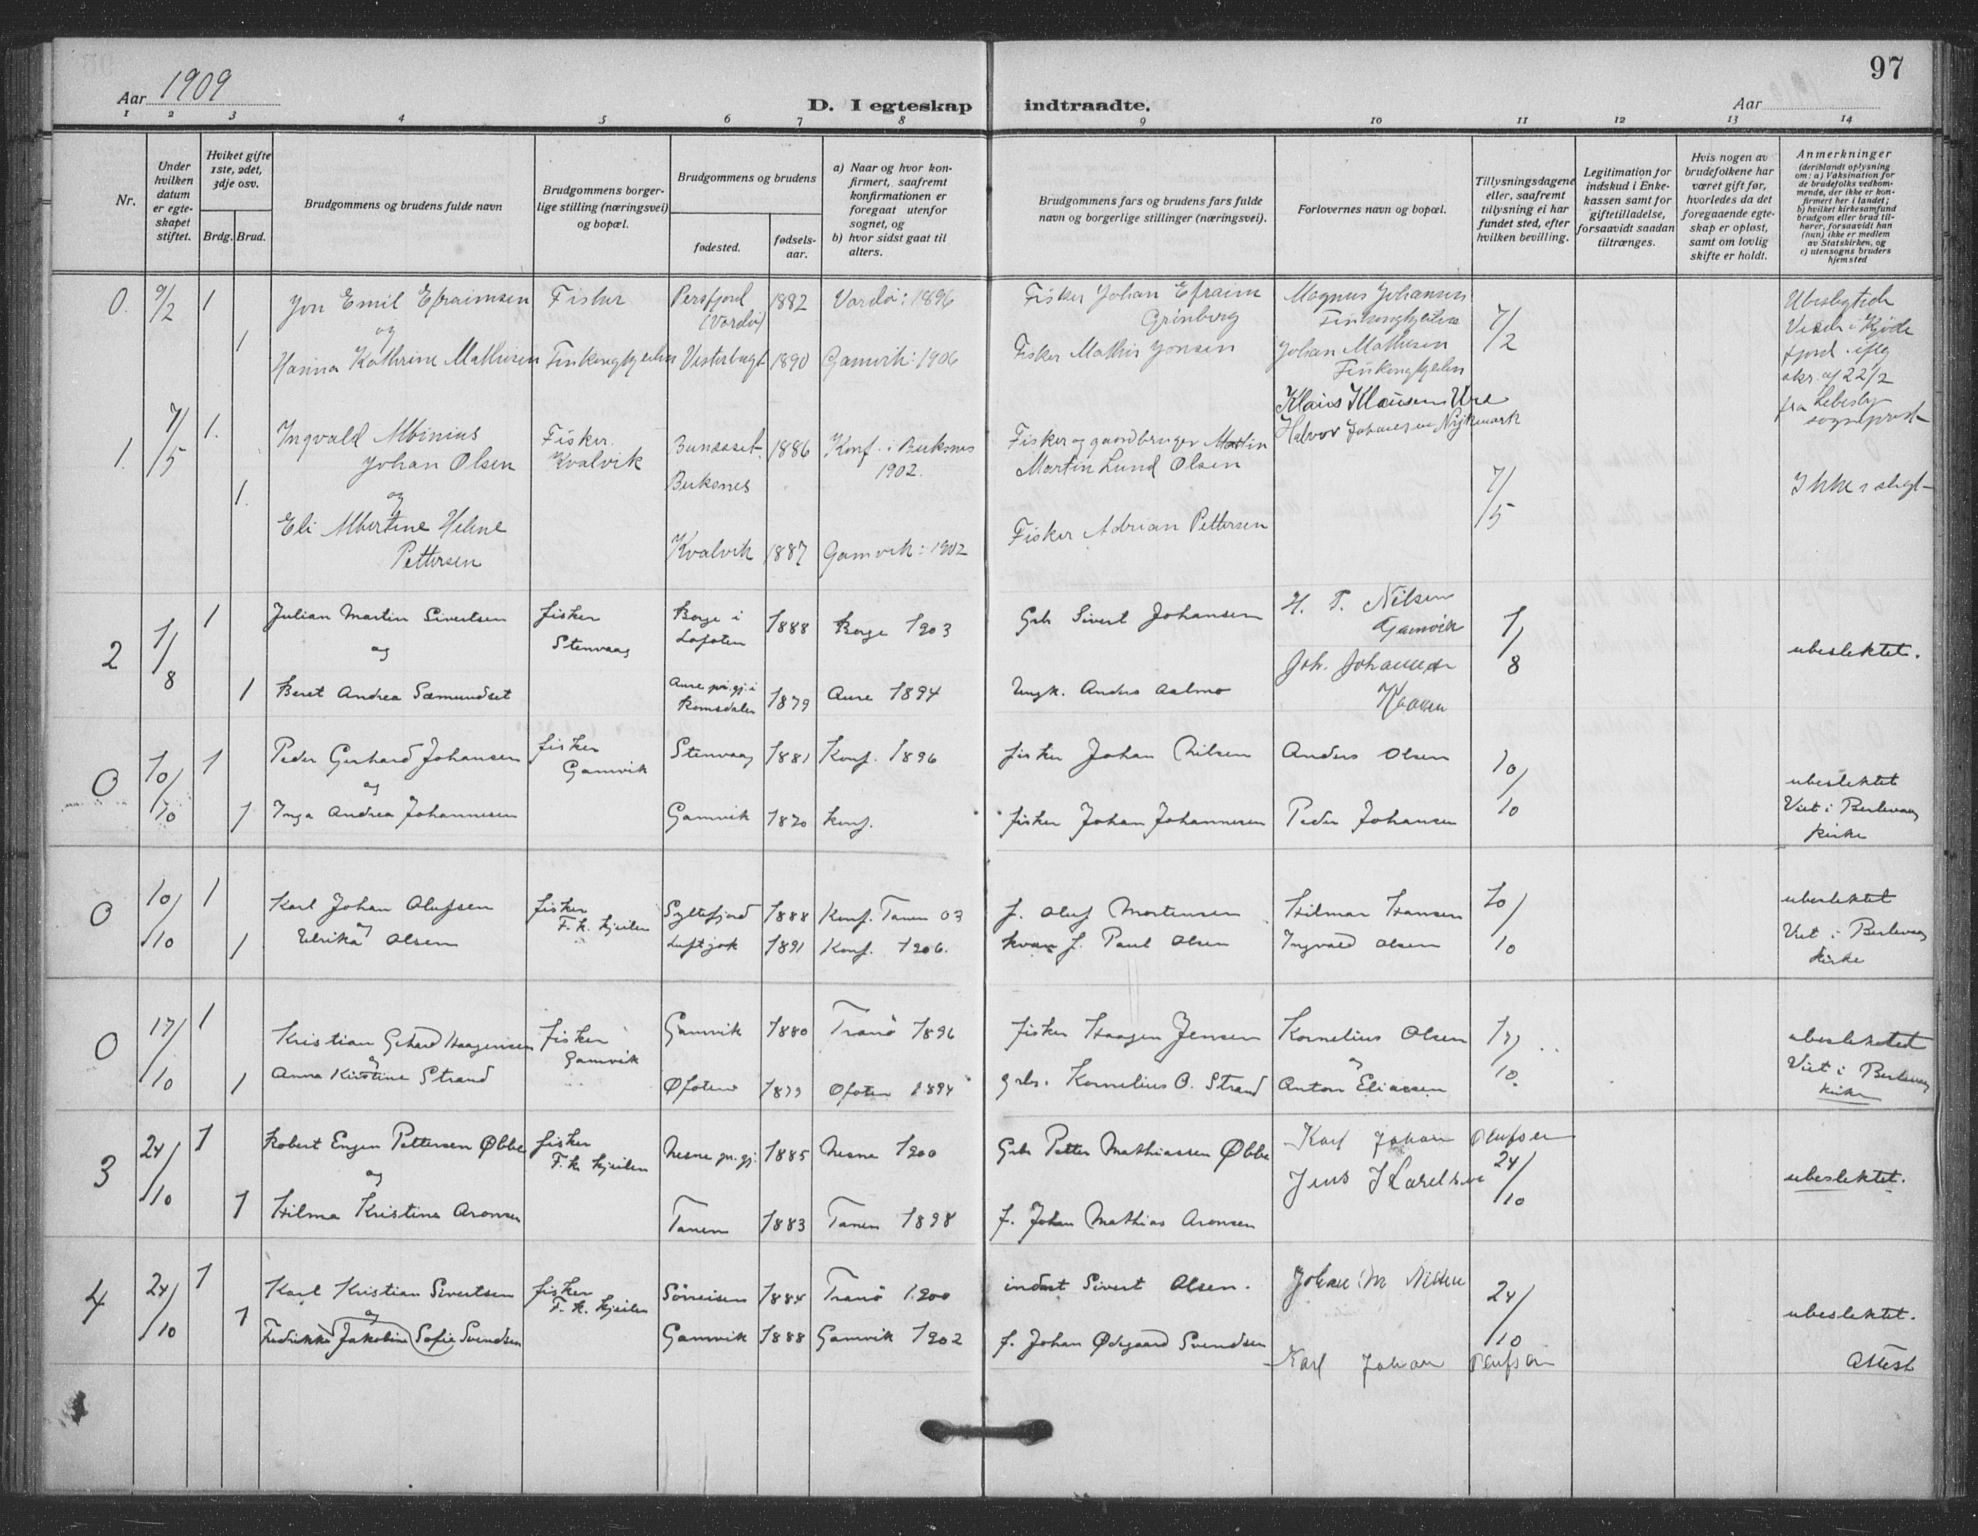 97
Aar 1909
D. I egteskap indtraadte.
Aar
1 2 3 4 5 6 7 8 9 10 11 12 13 14
Nr.
Under hvilken datum er egteskapet stiftet.
Hviket gifte 1ste, 2det, 3dje osv.
Brdg. Brud.
Brudgommens og brudens fulde navn
Brudgommens borgerlige stilling (næringsvei) og bopæl.
Brudgommens og brudens
fødested.
fødselsaar.
a) Naar og hvor konfirmert, saafremt konfirmationen er foregaat utenfor sognet, og
b) hvor sidst gaat til alters.
Brudgommens fars og brudens fars fulde navn og borgerlige stillinger (næringsvei).
Forlovernes navn og bopæl.
Tillysningsdagene eller, saafremt tillysning ei har fundet sted, efter hvilken bevilling.
Legitimation for indskud i Enkekassen samt for giftetilladelse, forsaavidt saadan tiltrænges.
Hvis nogen av brudefolkene har været gift før, hvorledes da det foregaaende egteskap er opløst, samt om lovlig skifte er holdt.
Anmerkninger
(deriblandt oplysning om: a) Vaksination for de brudefolks vedkommende, der ikke er konfirmert her i landet; b) hvilket kirkesamfund brudgom eller brud tilhører, forsaavidt han (hun) ikke er medlem av Statskirken, og c) utensogns bruders hjemsted
0. 9/2 1 Jon Emil Efraimsen Fisker Persfjord (Vardø) 1882 Vardø: 1896 Fisker Johan Efraim Grønberg Magnus Johansen Finkongkjeilen 7/2
og
1 Hanna Kathrine Mathisen Finkongkjeilen Vesterbugt 1890 Gamvik: 1906 Fisker Mathis Jonsen Johan Mathisen Finkongkjeilen
Ubeslegtede
fjord. iflg
skr. af 22/2
fra Lebesby
sogneprest
1. 7/5 1. Ingvald Albinius Johan Olsen Fisker. Kvalvik Buksnes 1886 Konf. i Buksnes 1902. Fisker og gaardbruger Martin
Martin Lund Olsen
Klaus Klausen Ure
Halvor Johansen
7/5 Ikke i slegt
og
1. Eli Albertine Helene Pettersen Kvalvik 1887 Gamvik: 1902 Fisker Adrian Pettersen
2 1/8 1 Julian Martin Sivertsen fisker Stenvaag Borge i Lofoten 1888 Borge 1903 Grb Sivert Johansen H. P. Nilsen Gamvik 1/8 ubeslektet.
og
1 Beret Andrea Sæmundset Aure pr.gj. i Romsdalen 1879 Aure 1894 Ungk. Anders Aalmo Joh. Johansen
0 10/10 1 Peder Gerhard Johansen fisker Gamvik Stenvaag 1881 Konf. 1896 fisker Johan Nilsen Anders Olsen 10/10 ubeslektet
og
1 Inga Andrea Johannesen Gamvik 1870 Konf. fisker Johan Johannesen Peder Johansen Viet i Berlevaag kirke
0 10/10 1 Karl Johan Olufsen fisker F. k. kjeilen Syltefjord 1888 Konf. Tanen 03 f. Oluf Mortensen Hilmar Hansen 10/10 ubeslektet
og
1 Ulrika Olsen Luftjok 1891 Konf. 1906. kvæn f. Paul Olsen Ingvald Olsen Viet i Berlevaag kirke
0 17/10 1 Kristian Gerhard Haagensen fisker Gamvik Gamvik 1880 Tranö 1896 fisker Haagen Jensen Kornelius Olsen 17/10. ubeslektet
og
1 Anna Kirstine Strand Ofoten 1879 Ofoten 1894 grb. Kornelius O. Strand Anton Eliassen Viet i Berlevaag kirke
3 24/10 1 Robert Engen Pettersen Øbbe fisker F. k. kjeilen Nesne pr. gj. 1885 Nesne 1900 Grb Petter Mathiassen Øbbe Karl Johan Olufsen 24/10 ubeslektet.
og
1 Hilma Kristina Aronsen Tanen 1883 Tanen 1898 f. Johan Mathias Aronsen Jens Karelsen
4 24/10 1 Karl Kristian Sivertsen fisker F. k. kjeilen Sörreisen 1884 Tranö 1900 inderst Sivert Olsen. Johan M Nilsen 24/10 ubeslektet.
og
1 Fredrikke Jakobine Sofie Svendsen Gamvik 1888 Gamvik 1902 f. Johan Ødegaard Svendsen Karl Johan Olufsen Attest